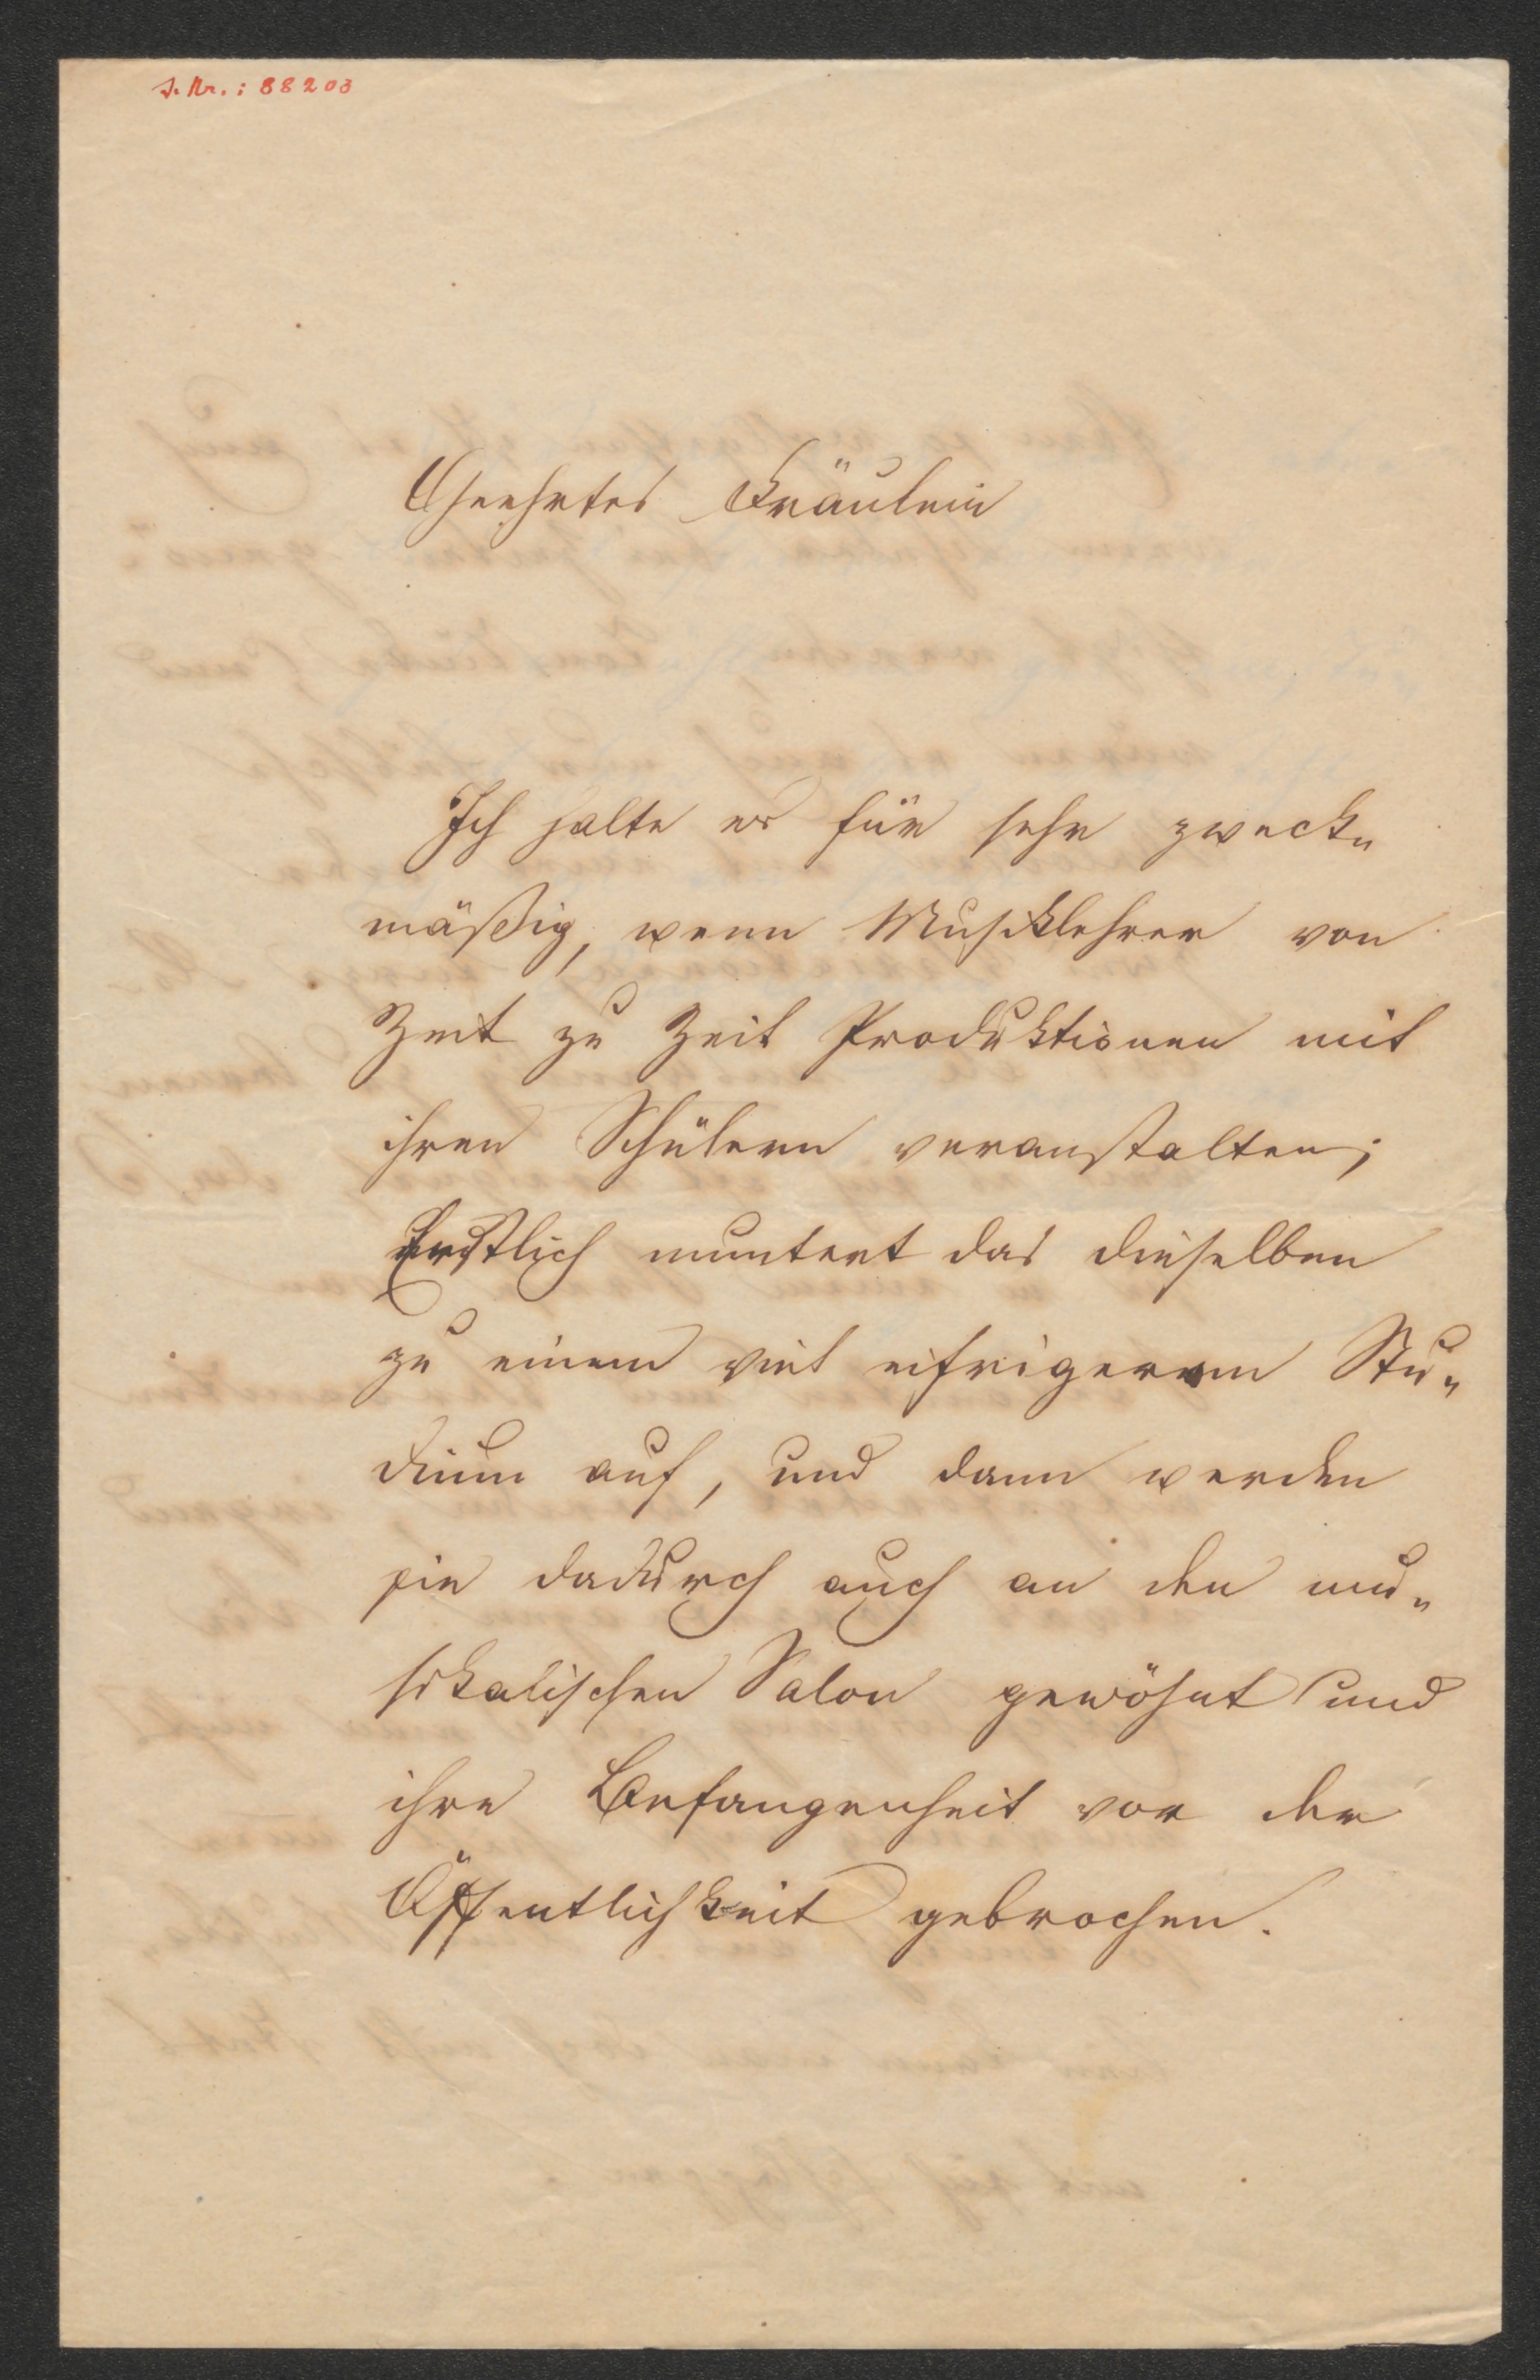 J. Nr.: 88203
Geehrtes Fräulein
Ich halte es für sehr zweck„
mäßig, wenn Musiklehrer von
Zeit zu Zeit Produktionen mit
ihren Schülern veranstalten;
Erstlich muntert das dieselben
zu einem viel eifrigerem Stu„
dium auf, und dann werden
sie dadurch auch an den mu„
sikalischen Salon gewöhnt und
ihre Befangenheit vor der
Öffentlichkeit gebrochen.